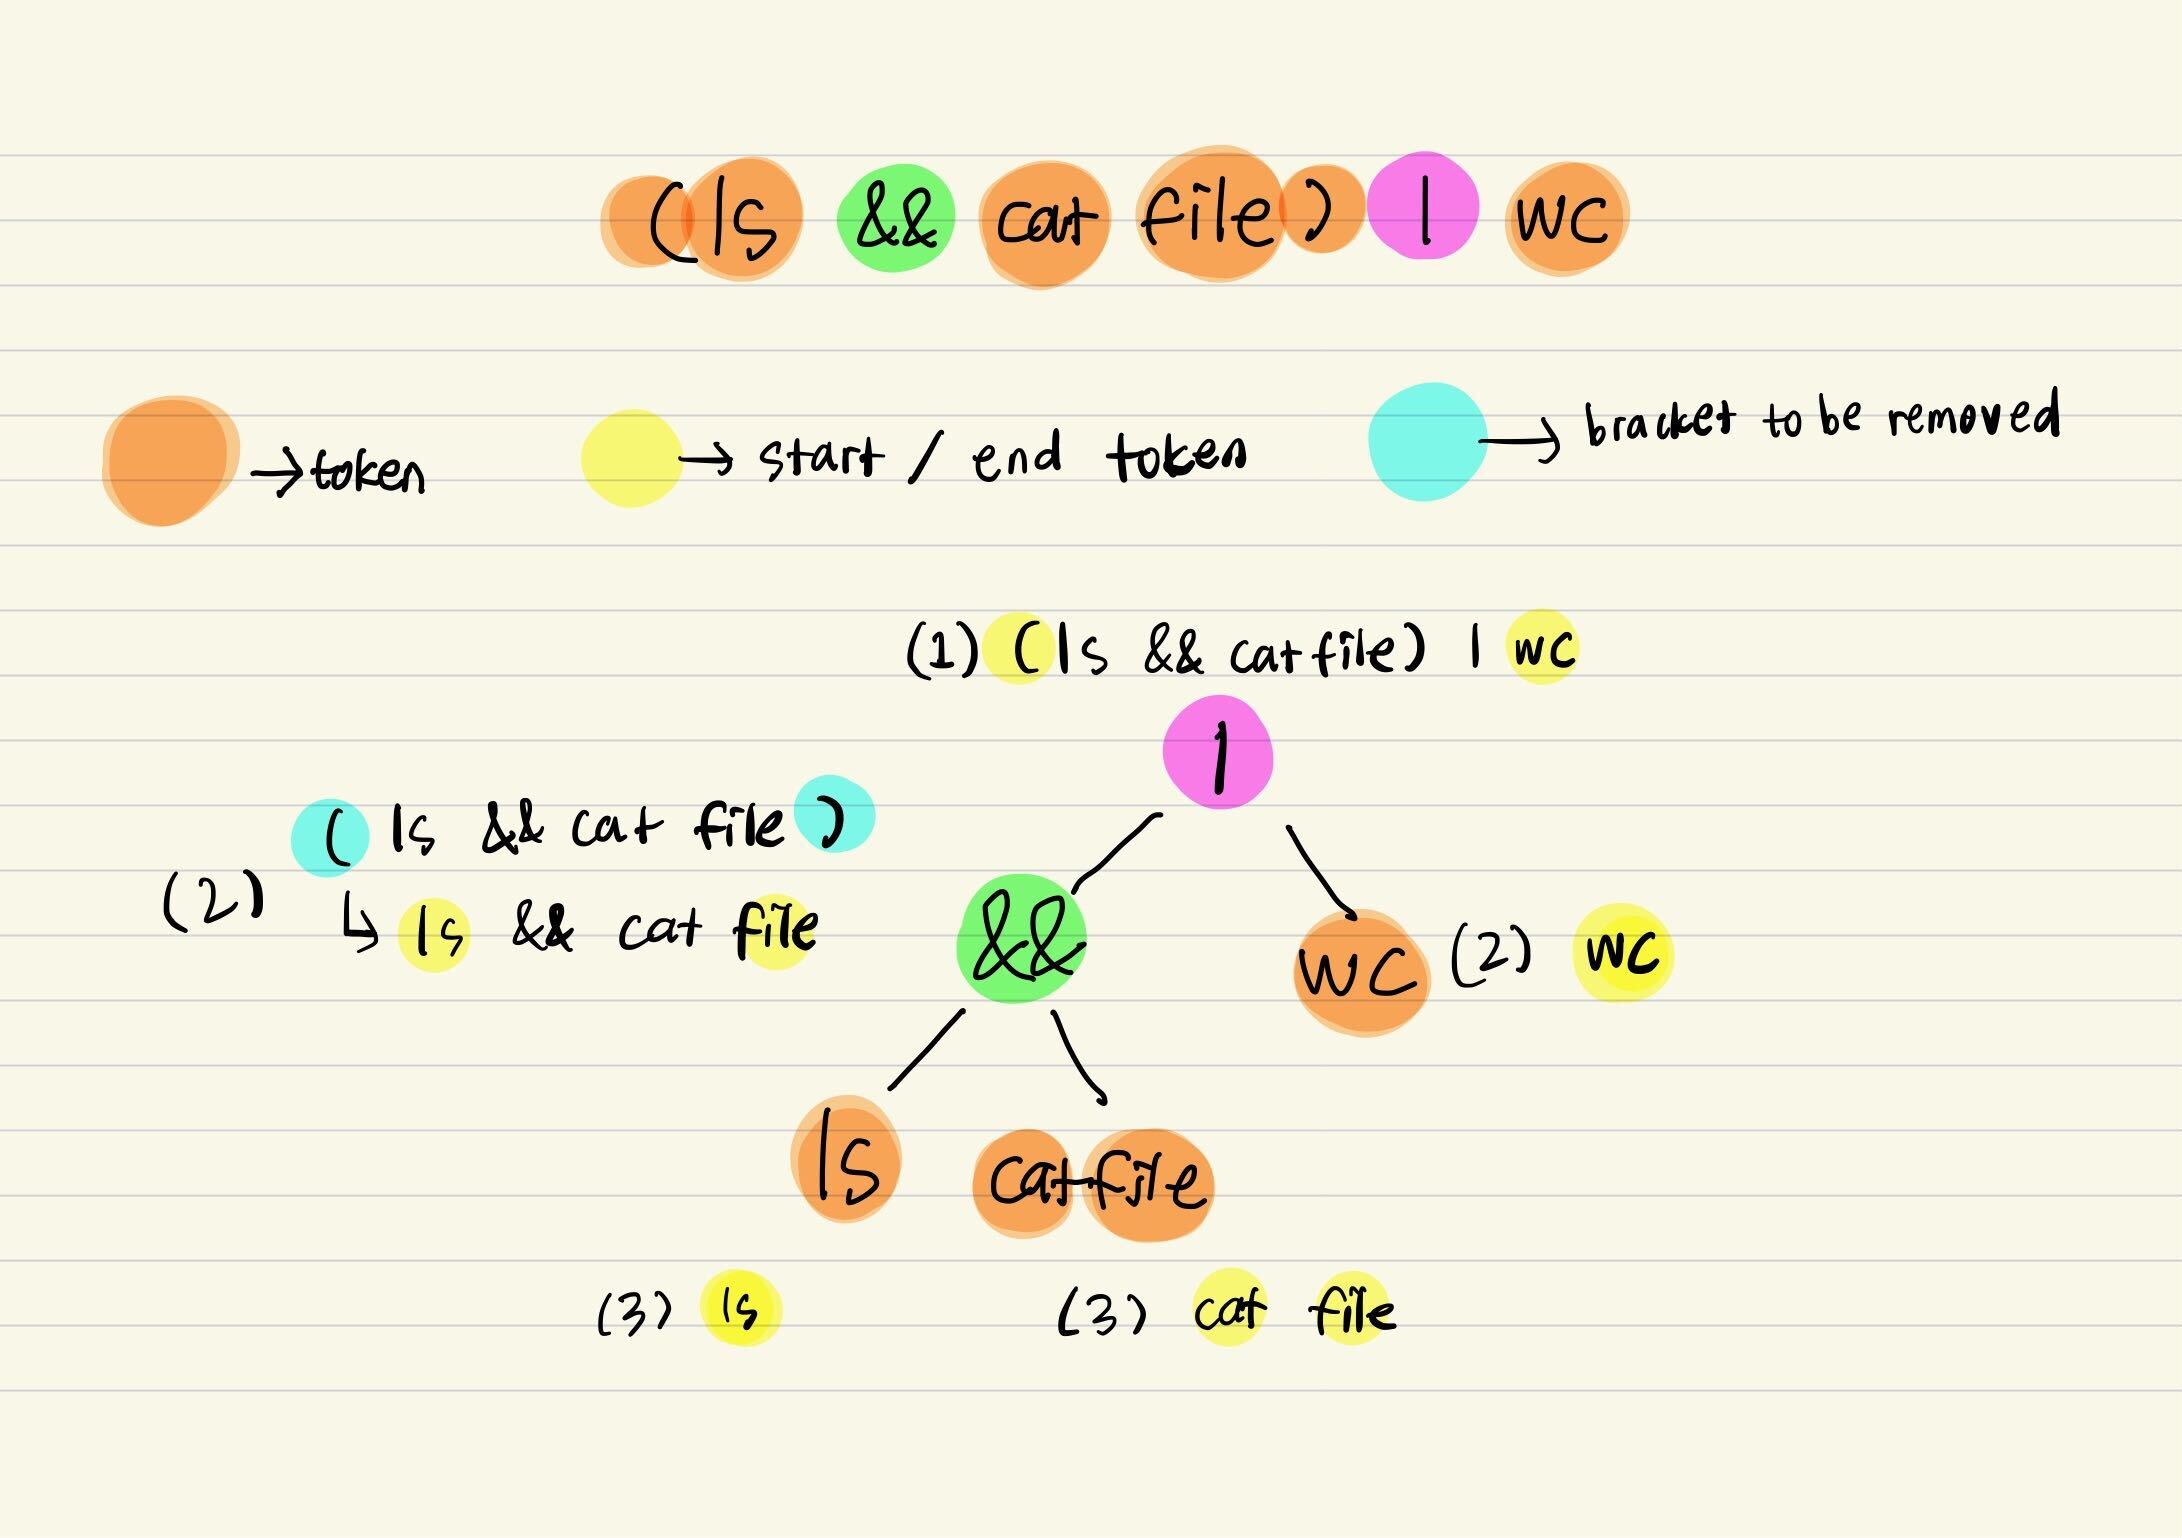 (ls && cat file) | wc
→ token → start / end token → bracket to be removed
(1) (ls && cat file) | wc
|
( ls && cat file )
(2) ↳ ls && cat file
&& wc (2) wc
ls cat file
(3) ls (3) cat file